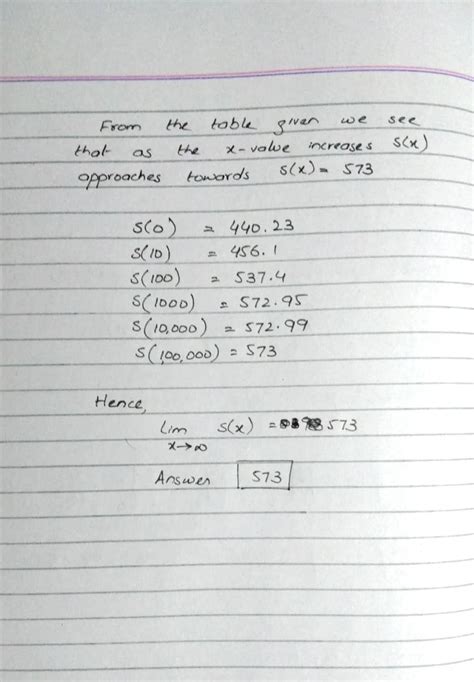 From the table given we see
that as the x-value increases s(x)
approaches towards s(x) = 573
S(0) = 440.23
S(10) = 456.1
S(100) = 537.4
S(1000) = 572.95
S(10,000) = 572.99
S(100,000) = 573
Hence,
lim s(x) = 573
x→∞
Answer 573